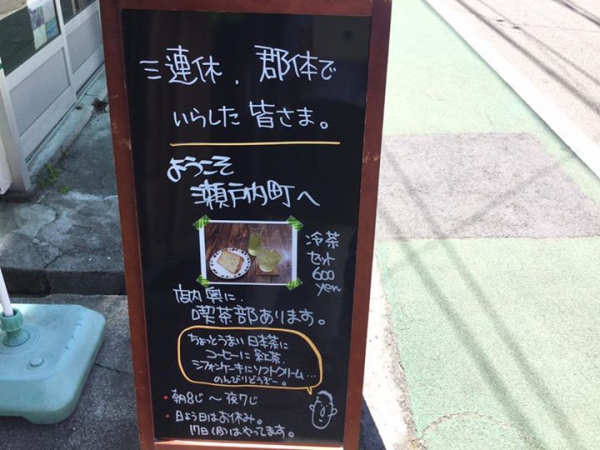 三連休、郡体で
いらした皆さま。
ようこそ
瀬戸内町へ
冷茶
セット
600
yen
店内奥に、
喫茶部あります。
ちょっとうまい日本茶に
コーヒーに紅茶、
シフォンケーキにソフトクリーム…
のんびりどうぞー。
・朝8じ～夜7じ
・日よう日はお休み。
17日(月)はやってます。